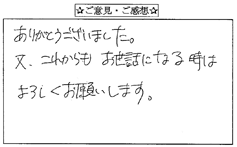 ☆ご意見・ご感想☆
ありがとうございました。
又、これからも お世話になる時は
よろしくお願いします。